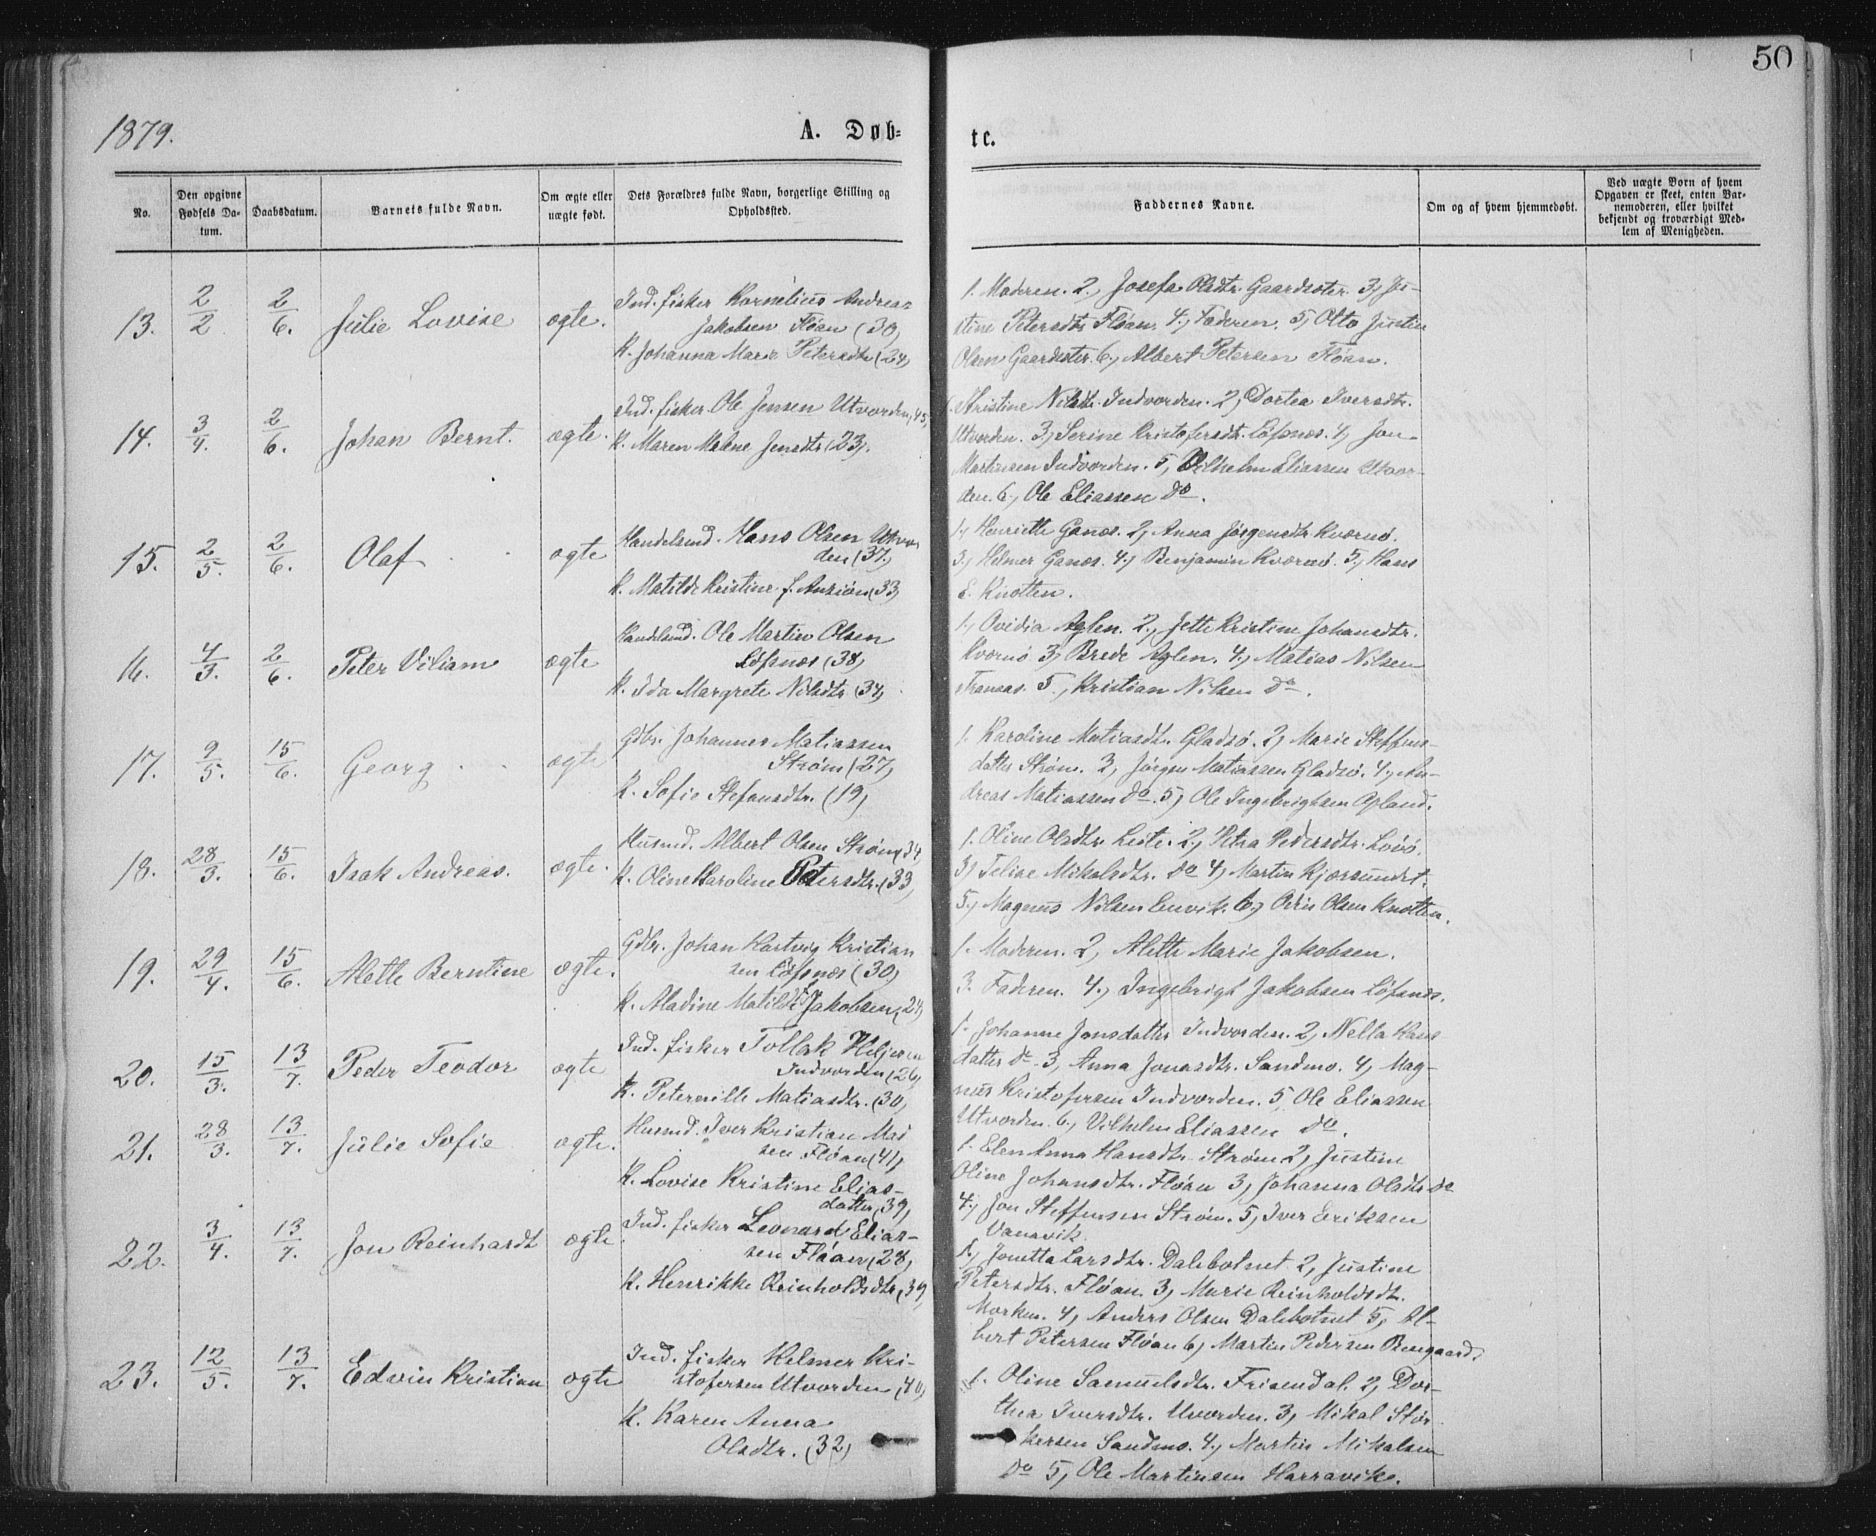 50
1879.
A. Døb-
te.
No.
Den opgivne Fødsels Da-tum.
Daabsdatum.
Barnets fulde Navn.
Om ægte eller uægte født.
Dets Forældres fulde Navn, borgerlige Stilling og Opholdssted.
Faddernes Navne.
Om og af hvem hjemmedøbt.
Ved uægte Børn af hvem Opgaven er skeet, enten Bar-nemoderen, eller hvilket bekjendt og troværdigt Med-lem af Menigheden.
13. 2/2 2/6. Julie Lovise ægte.
Ind. fisker Kornelius Andreas
Jakobsen Fløan (30)
K. Johanna Marie Petersdtr (24)
1. Moderen. 2, Josefa Olsdtr. Gaardseter. 3, Ju-
stine Petersdtr. Fløan. 4, Faderen. 5, Otto Justin
Olsen Gaardseter. 6, Albert Petersen Fløan.
14. 3/4. 2/6. Johan Bernt. ægte.
Ind. fisker Ole Jensen Utvorden, 45,
K. Maren Malene Jensdtr (23).
Kristine Nilsdtr. Indvorden. 2, Dortea Iversdtr.
Utvorden. 3, Serine Kristofersdt. Löfsnes. 4, Jon
Martinsen Indvorden. 5, Vilhelm Eliassen Utvor-
den. 6, Ole Eliassen do.
15. 2/5. 2/6. Olaf ægte
Handelsmd. Hans Olsen Utvor
den (37,
K. Matilde Kristine f. Anzion (33)
1, Henriette Ganes. 2, Anna Jørgensdtr Kvernø.
3, Helmer Ganes. 4, Benjamin Kvernø. 5, Hans
E. Knotten.
16. 4/3. 2/6. Peter Viliam ægte
Handelsmd. Ole Martin Olsen
Löfsnes (38)
K. Ida Margrete Nilsdtr (34)
1, Ovidia Aglen. 2, Jette Kristine Johansdtr.
Kvernø 3, Brede Aglen. 4, Matias Nilsen
5, Kristian Nilsen do.
17. 9/5. 15/6. Georg ægte
Gdbr. Johannes Matiassen
Strøm (27,
K. Sofie Stefansdtr. (19)
1. Karoline Matiasdtr. Gladsø. 2, Marie Steffens-
datter Strøm. 3, Jørgen Matiassen Gladsø. 4, An-
dreas Matiassen do. 5, Ole Ingebrigtsen Opland.
18. 28/3. 15/6. Isak Andreas. ægte.
Husmd. Albert Olsen Strøm (34
K. Oline Karoline Petersdtr. (33)
1. Oline Olsdtr. Leite. 2, Petra Pedersdtr. Lovö.
3, Felise Mikalsdtr. do 4, Martin Kjørsundet.
5, Magnus Nilsen 6, Odin Olsen Knotten.
19. 29/4. 15/6. Alette Berntine ægte.
Gdbr. Johan Hartvig Kristian
sen Löfsnes (30)
K. Aladine Matilde f. Jakobsen, 24)
1. Moderen. 2, Alette Marie Jakobsen.
3. Faderen. 4, Ingebrigt Jakobsen Löfsnes.
20. 15/3. 13/7. Peder Teodor ægte
Ind. fisker Tollak Heljesen
Indvorden (26,
K. Peternille Matiasdtr. (30)
1. Johanne Jonsdatter Indvorden. 2, Nella Hans
datter do. 3, Anna Jonasdtr. Sandmo. 4, Mag-
nus Kristofersen Indvorden. 5, Ole Eliassen
Utvorden. 6, Vilhelm Eliassen do.
21. 28/3. 13/7. Julie Sofie ægte.
Husmd. Iver Kristian Mad
sen Fløan (41)
K. Lovise Kristine Elias-
datter, 39)
1. Elen Anna Hansdtr. Strøm 2, Justine
Oline Johansdtr. Fløan 3, Johanna Olsdtr do
4, Jon Steffensen Strøm. 5, Iver Eriksen
Vansvik.
22. 3/4. 13/7. Jon Reinhardt ægte
Ind. fisker Leonard Elias-
sen Fløan, 28,
K. Henrikke Reinholdsdtr, 39,
1, Jonetta Larsdtr. Dalebotnet. 2, Justine
Petersdtr. Fløan. 3, Marie Reinholdsdt.
Morken. 4, Anders Olsen Dalebotnet 5, Al-
bert Petersen Fløan 6, Martin Pedersen
23. 12/5. 13/7. Edvin Kristian ægte
Ind. fisker Helmer Kri-
stofersen Utvorden, 40)
K. Karen Anna
Olsdtr. (32)
1. Oline Samuelsdtr. Frisendal. 2, Dor-
thea Iversdtr. Utvorden. 3, Mikal Stor-
kersen Sandmo. 4, Martin Mikalsen
do 5, Ole Martinsen Harravik.